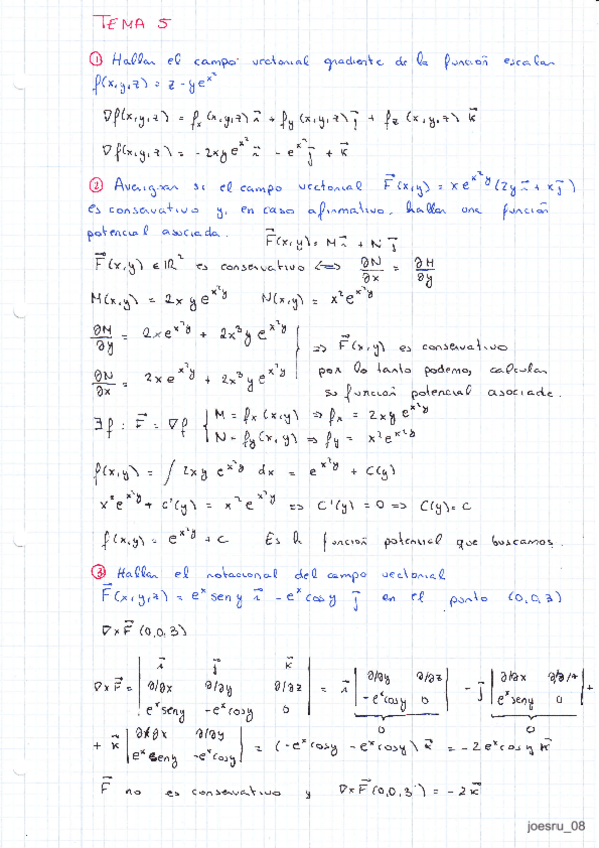 TEMA 5
① Hallar el campo vectorial gradiente de la función escalar
f(x,y,z) = z - ye^{x²}
∇f(x,y,z) = fx(x,y,z) i⃗ + fy(x,y,z) j⃗ + fz(x,y,z) k⃗
∇f(x,y,z) = -2xye^{x²} i⃗ - e^{x²} j⃗ + k⃗
② Averiguar si el campo vectorial F⃗(x,y) = xe^{x²y}(2y i⃗ + x j⃗)
es conservativo y, en caso afirmativo, hallar una función
potencial asociada.
F⃗(x,y) = M i⃗ + N j⃗
F⃗(x,y) ∈ ℝ² es conservativo ⇔ ∂N/∂x = ∂M/∂y
M(x,y) = 2xye^{x²y} N(x,y) = x²e^{x²y}
∂M/∂y = 2xe^{x²y} + 2x³ye^{x²y}
∂N/∂x = 2xe^{x²y} + 2x³ye^{x²y}
⇒ F⃗(x,y) es conservativo
por lo tanto podemos calcular
su función potencial asociada.
∃f : F⃗ = ∇f { M = fx(x,y) ⇒ fx = 2xye^{x²y}
N = fy(x,y) ⇒ fy = x²e^{x²y}
f(x,y) = ∫ 2xy e^{x²y} dx = e^{x²y} + C(y)
x²e^{x²y} + C'(y) = x²e^{x²y} ⇒ C'(y) = 0 ⇒ C(y) = C
f(x,y) = e^{x²y} + C Es la función potencial que buscamos.
③ Hallar el rotacional del campo vectorial
F⃗(x,y,z) = e^x sen y i⃗ - e^x cos y j⃗ en el punto (0,0,3)
∇×F⃗(0,0,3)
∇×F⃗ = | i⃗ j⃗ k⃗ ; ∂/∂x ∂/∂y ∂/∂z ; e^x sen y -e^x cos y 0 | = i⃗ | ∂/∂y ∂/∂z ; -e^x cos y 0 | - j⃗ | ∂/∂x ∂/∂z ; e^x sen y 0 | +
0 0
+ k⃗ | ∂/∂x ∂/∂y ; e^x sen y -e^x cos y | = (-e^x cos y - e^x cos y) k⃗ = -2e^x cos y k⃗
F⃗ no es conservativo y ∇×F⃗(0,0,3) = -2k⃗
joesru_08